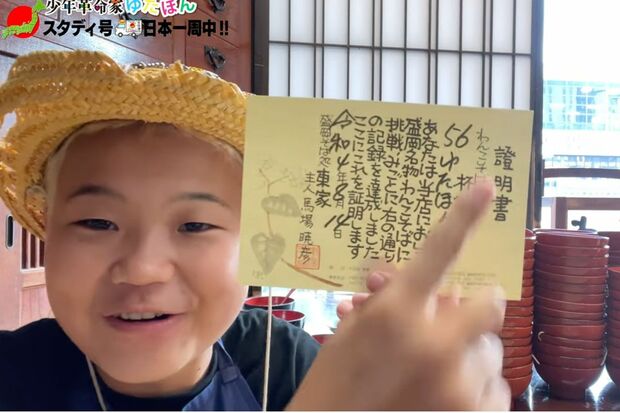 少年革命家ゆたぼん
スタディ号 日本一周中!!
證明書
わんこそ
56杯
ゆたぼん
あなたは当店におい
盛岡名物わんこそばに
挑戦みごとに右の通り
の記録を達成しました
ここにこれを証明します
令和4年8月14日
盛岡そば処 東家
主人 馬場暁彦